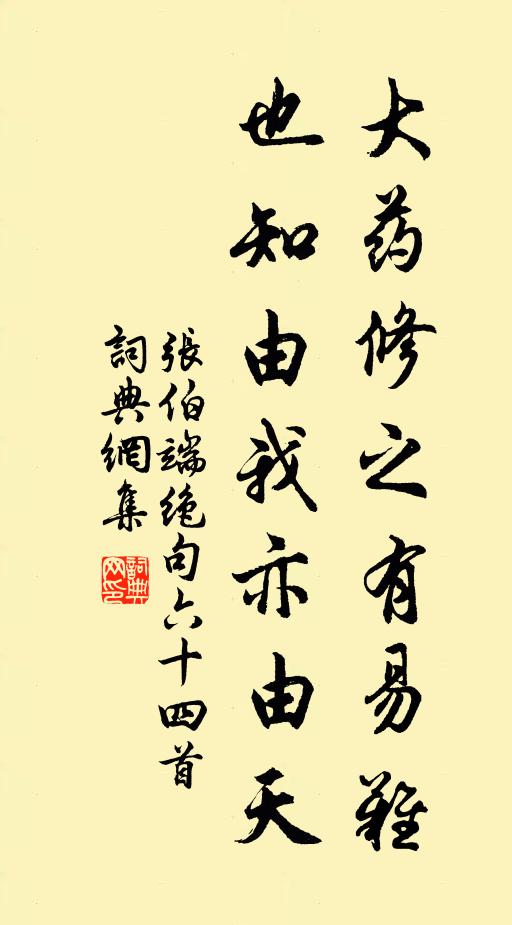 大药修之有易難
也知由我亦由天
張伯端絶句六十四首
詞典網集
詞典网印